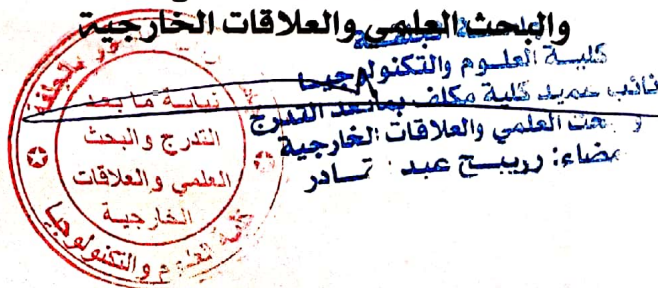 والبحث العلمي والعلاقات الخارجية
كليـة العلـوم والتكنولوجيـا
نائب عميد كلية مكلف بمابعد التدرج
و بحث العلمي والعلاقات الخارجية
مضاء: رزيـــح عبد
نيابة ما بعد
التدرج والبحث
العلمي والعلاقات
الخارجية
كلية العلوم والتكنولوجيا